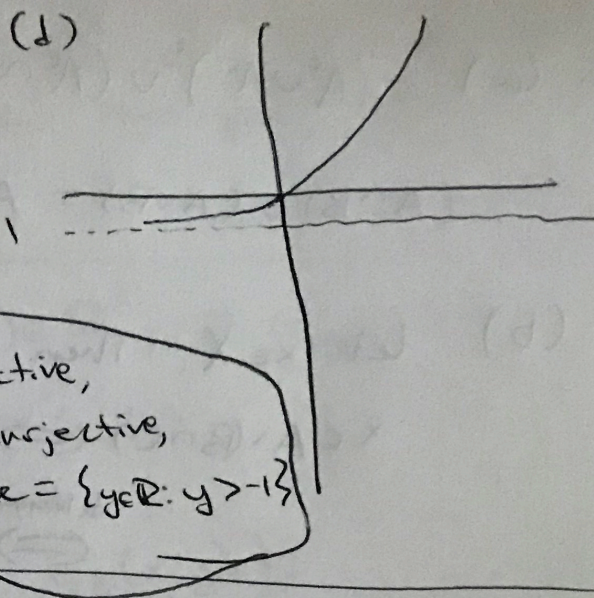 (d)
1
ctive,
urjective,
e = {y∈ℝ: y > -1}